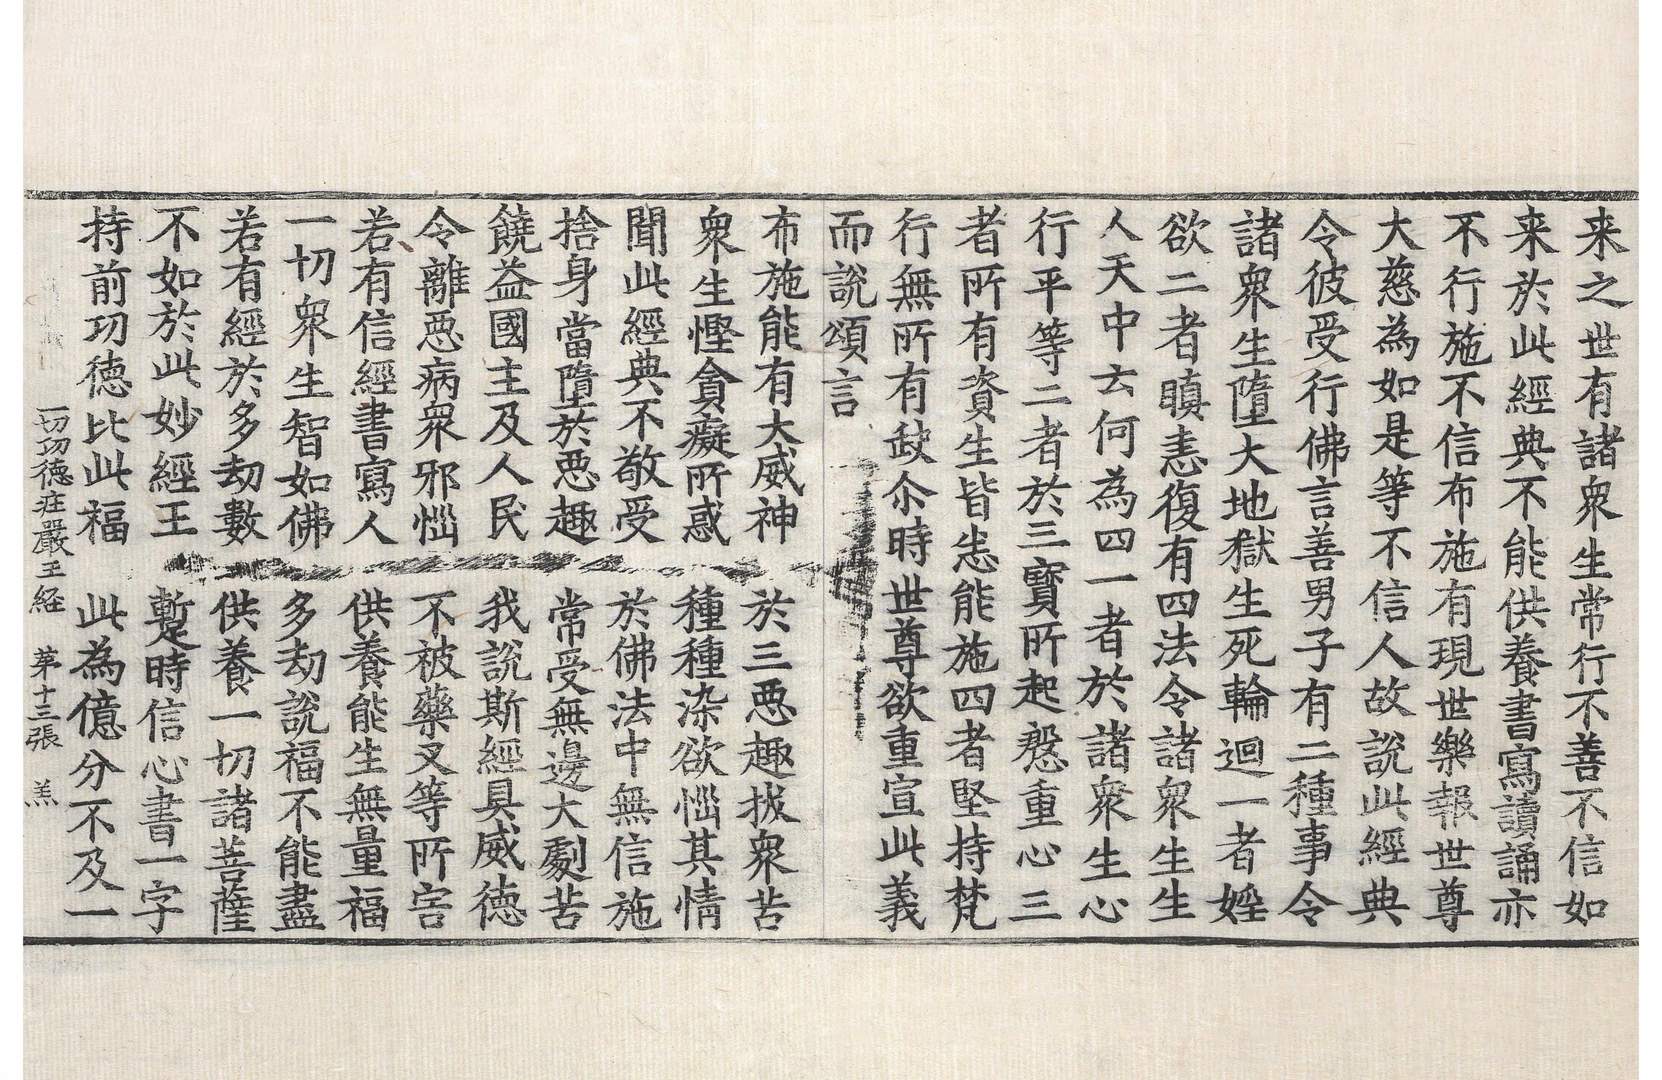 来之世有諸衆生常行不善不信如
来於此經典不能供養書寫讀誦亦
不行施不信布施有現世樂報世尊
大慈為如是等不信人故說此經典
令彼受行佛言善男子有二種事令
諸衆生墮大地獄生死輪迴一者婬
欲二者瞋恚復有四法令諸衆生生
人天中云何為四一者於諸衆生心
行平等二者於三寳所起慇重心三
者所有資生皆悉能施四者堅持梵
行無所有缺尒時世尊欲重宣此義
而說頌言
布施能有大威神　於三悪趣拔衆苦
衆生慳貪癡所惑　種種染欲惱其情
聞此經典不敬受　於佛法中無信施
捨身當墮於悪趣　常受無邊大劇苦
饒益國主及人民　我說斯經具威德
令離悪病衆邪惱　不被藥叉等所害
若有信經書寫人　供養能生無量福
一切衆生智如佛　多劫說福不能盡
若有經於多劫數　供養一切諸菩薩
不如於此妙經王　蹔時信心書一字
持前功德比此福　此為億分不及一
一切功德庄嚴王経　苐十三張　羔